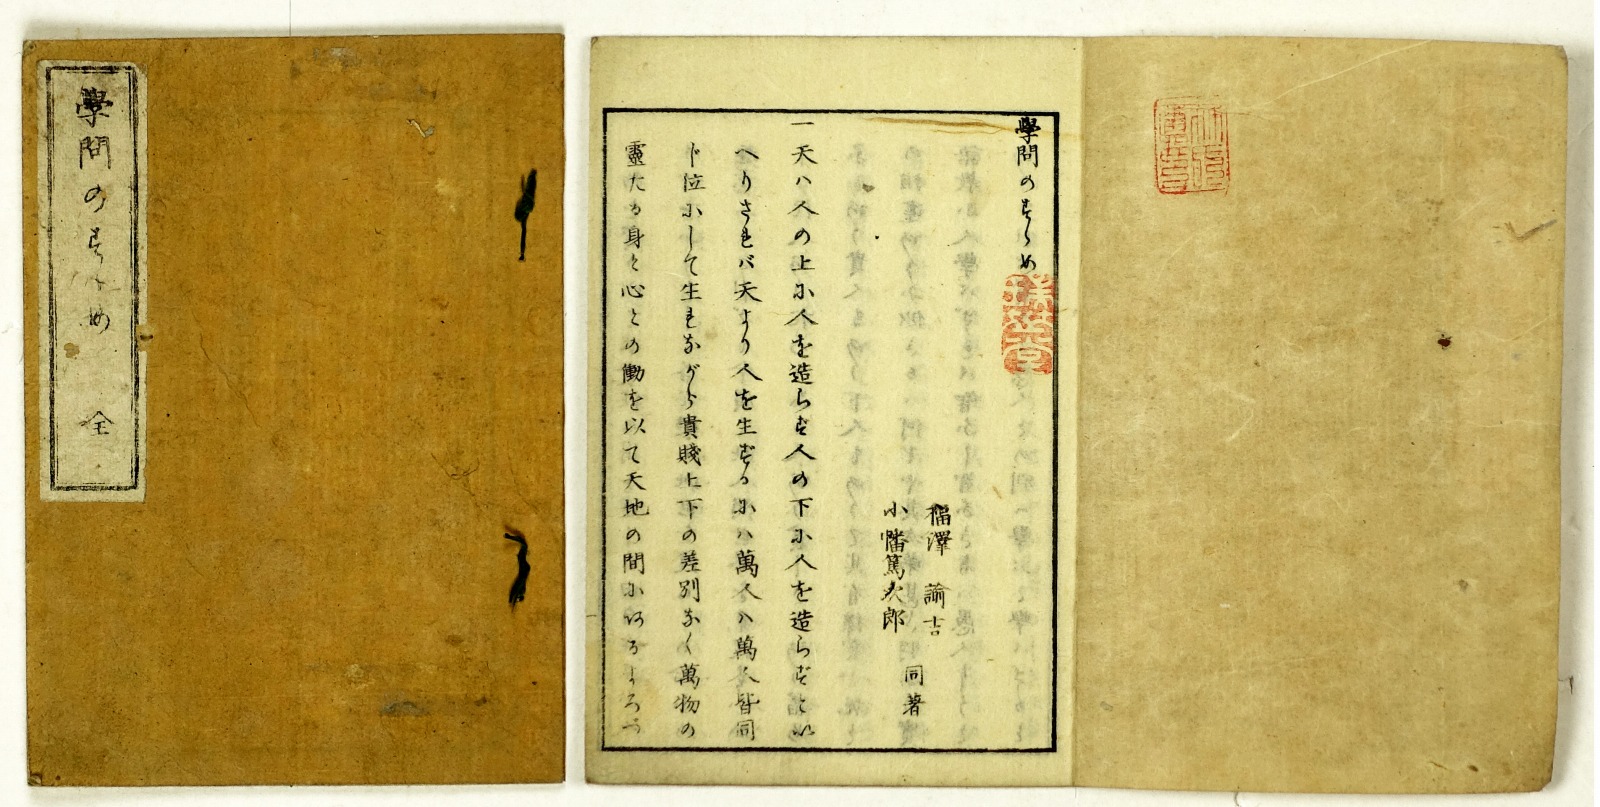 學問のすゝめ
全
學問のすゝめ
福澤諭吉
小幡篤次郎
同著
一天ハ人の上に人を造らず人の下に人を造らずと以
へりされバ天より人を生ずるにハ萬人ハ萬人皆同
じ位にして生れながら貴賤上下の差別なく萬物の
靈たる身と心との働を以て天地の間にあるよろづ